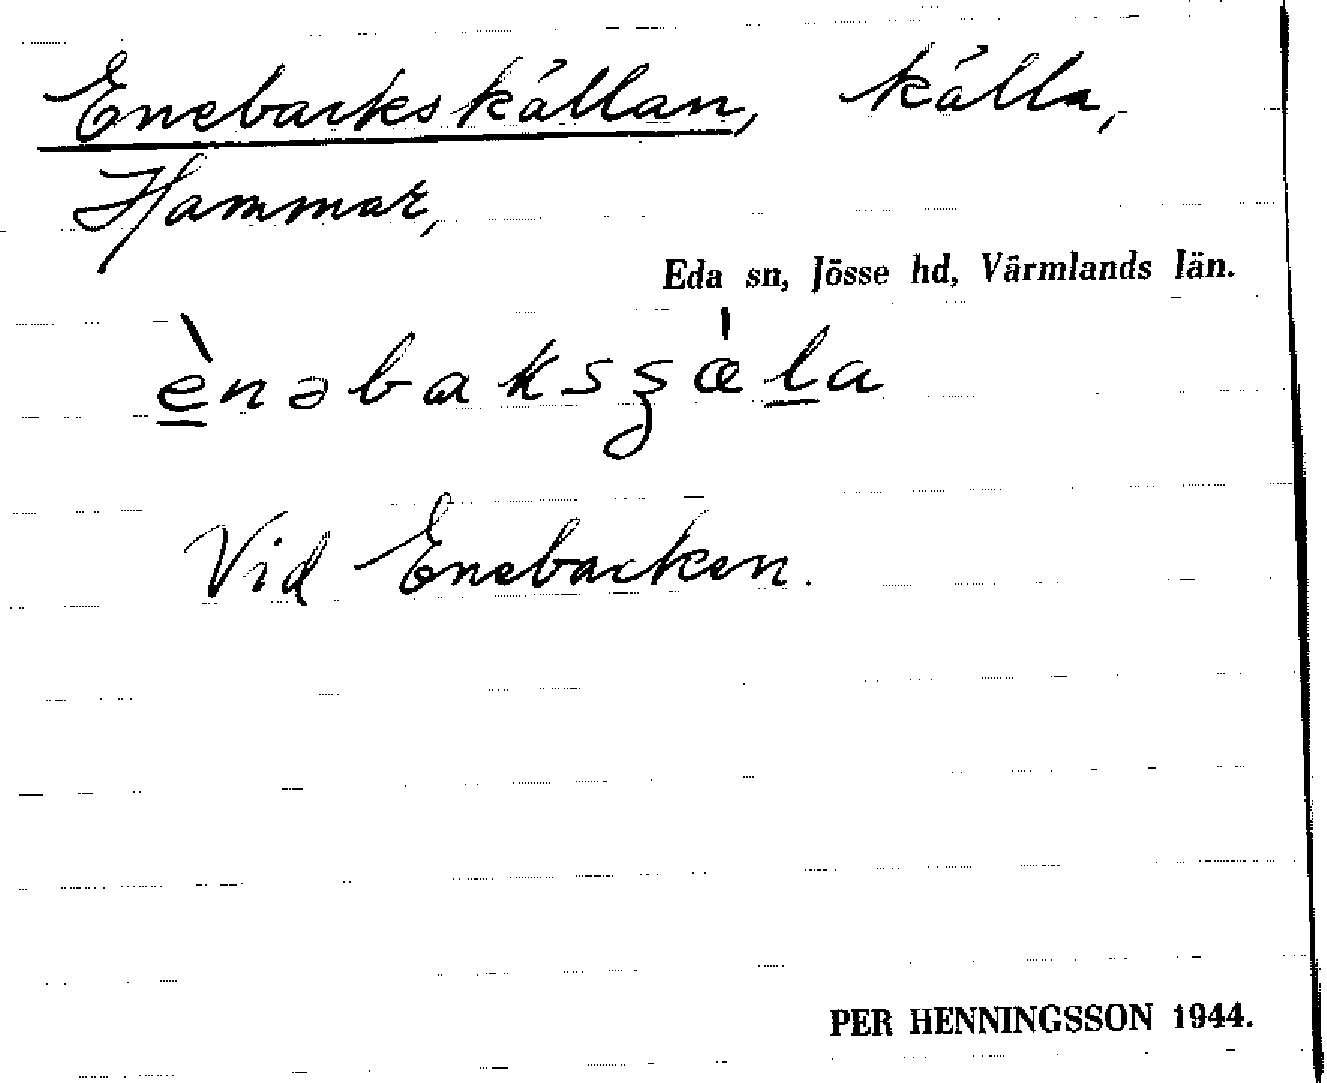 Enebackskällan, källa,
Hammar,
Eda sn, Jösse hd, Värmlands län.
ènəbaksʂæ̀la
Vid Enebacken.
PER HENNINGSSON 1944.